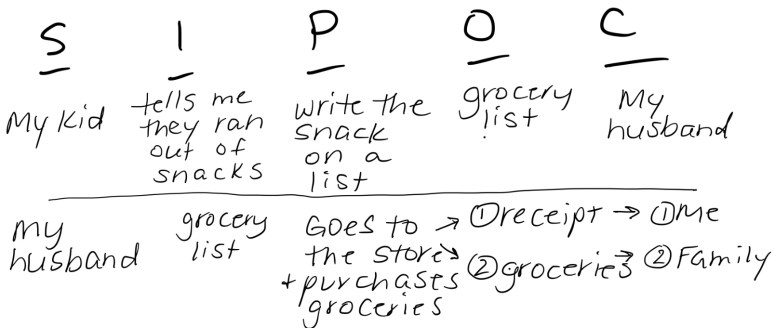 S I P O C
My Kid
tells me
they ran
out of
snacks
write the
snack
on a
list
grocery
list
My
husband
my
husband
grocery
list
Goes to
the store
+ purchases
groceries
→ ① receipt → ① Me
→ ② groceries → ② Family